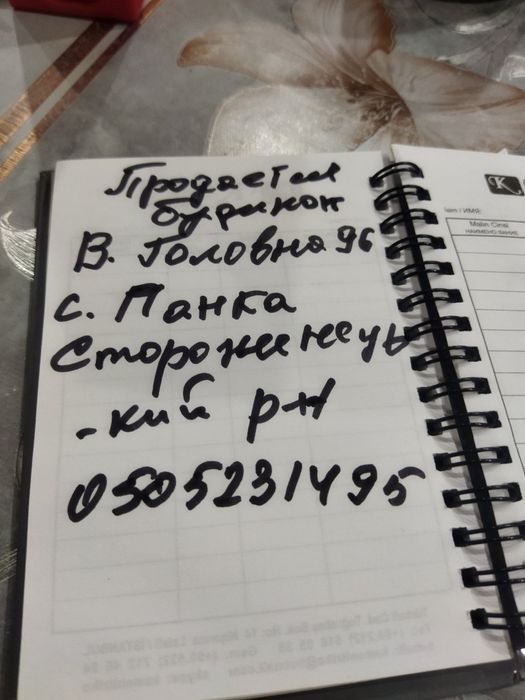 Продается
будинок
В. Головна 96
с. Панка
Сторожинець
-кий р-н
0505231495
K
İsim / ИМЯ:
Malın Cinsi
НАИМЕНОВАНИЕ